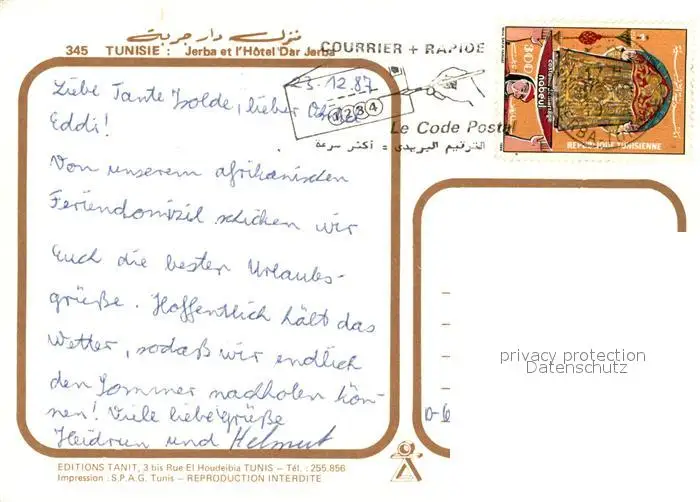 منزل دار جربة
345 TUNISIE : Jerba et l'Hôtel Dar Jerba
COURRIER + RAPIDE
23.12.87
1234
Le Code Postal
الترقيم البريدي = أكثر سرعة
300
nabeul
REPUBLIQUE TUNISIENNE
Liebe Tante Isolde, lieber Onkel
Eddi!
Von unserem afrikanischen
Feriendomizil schicken wir
Euch die besten Urlaubs-
grüße. Hoffentlich hält das
Wetter, sodaß wir endlich
den Sommer nachholen kön-
nen! Viele liebe Grüße
Heidrun und Helmut
privacy protection
Datenschutz
EDITIONS TANIT, 3 bis Rue El Houdeibia TUNIS – Tél. : 255.856
Impression : S.P.A.G. Tunis – REPRODUCTION INTERDITE